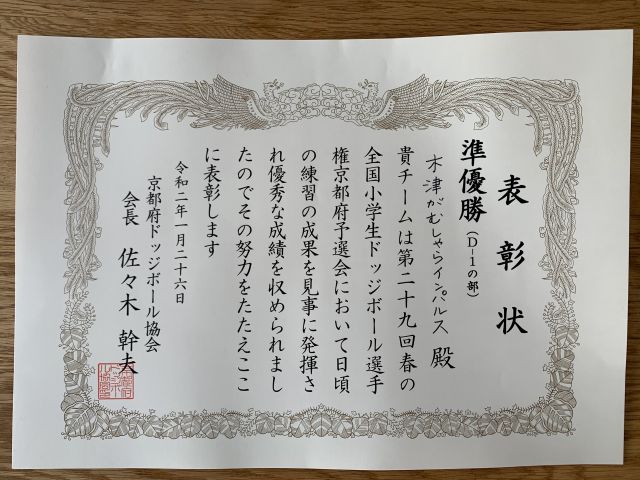 表彰状
準優勝(D-1の部)
木津がむしゃらインパルス 殿
貴チームは第二十九回春の
全国小学生ドッジボール選手
権京都府予選会において日頃
の練習の成果を見事に発揮さ
れ優秀な成績を収められまし
たのでその努力をたたえここ
に表彰します
令和二年一月二十六日
京都府ドッジボール協会
会長 佐々木 幹夫